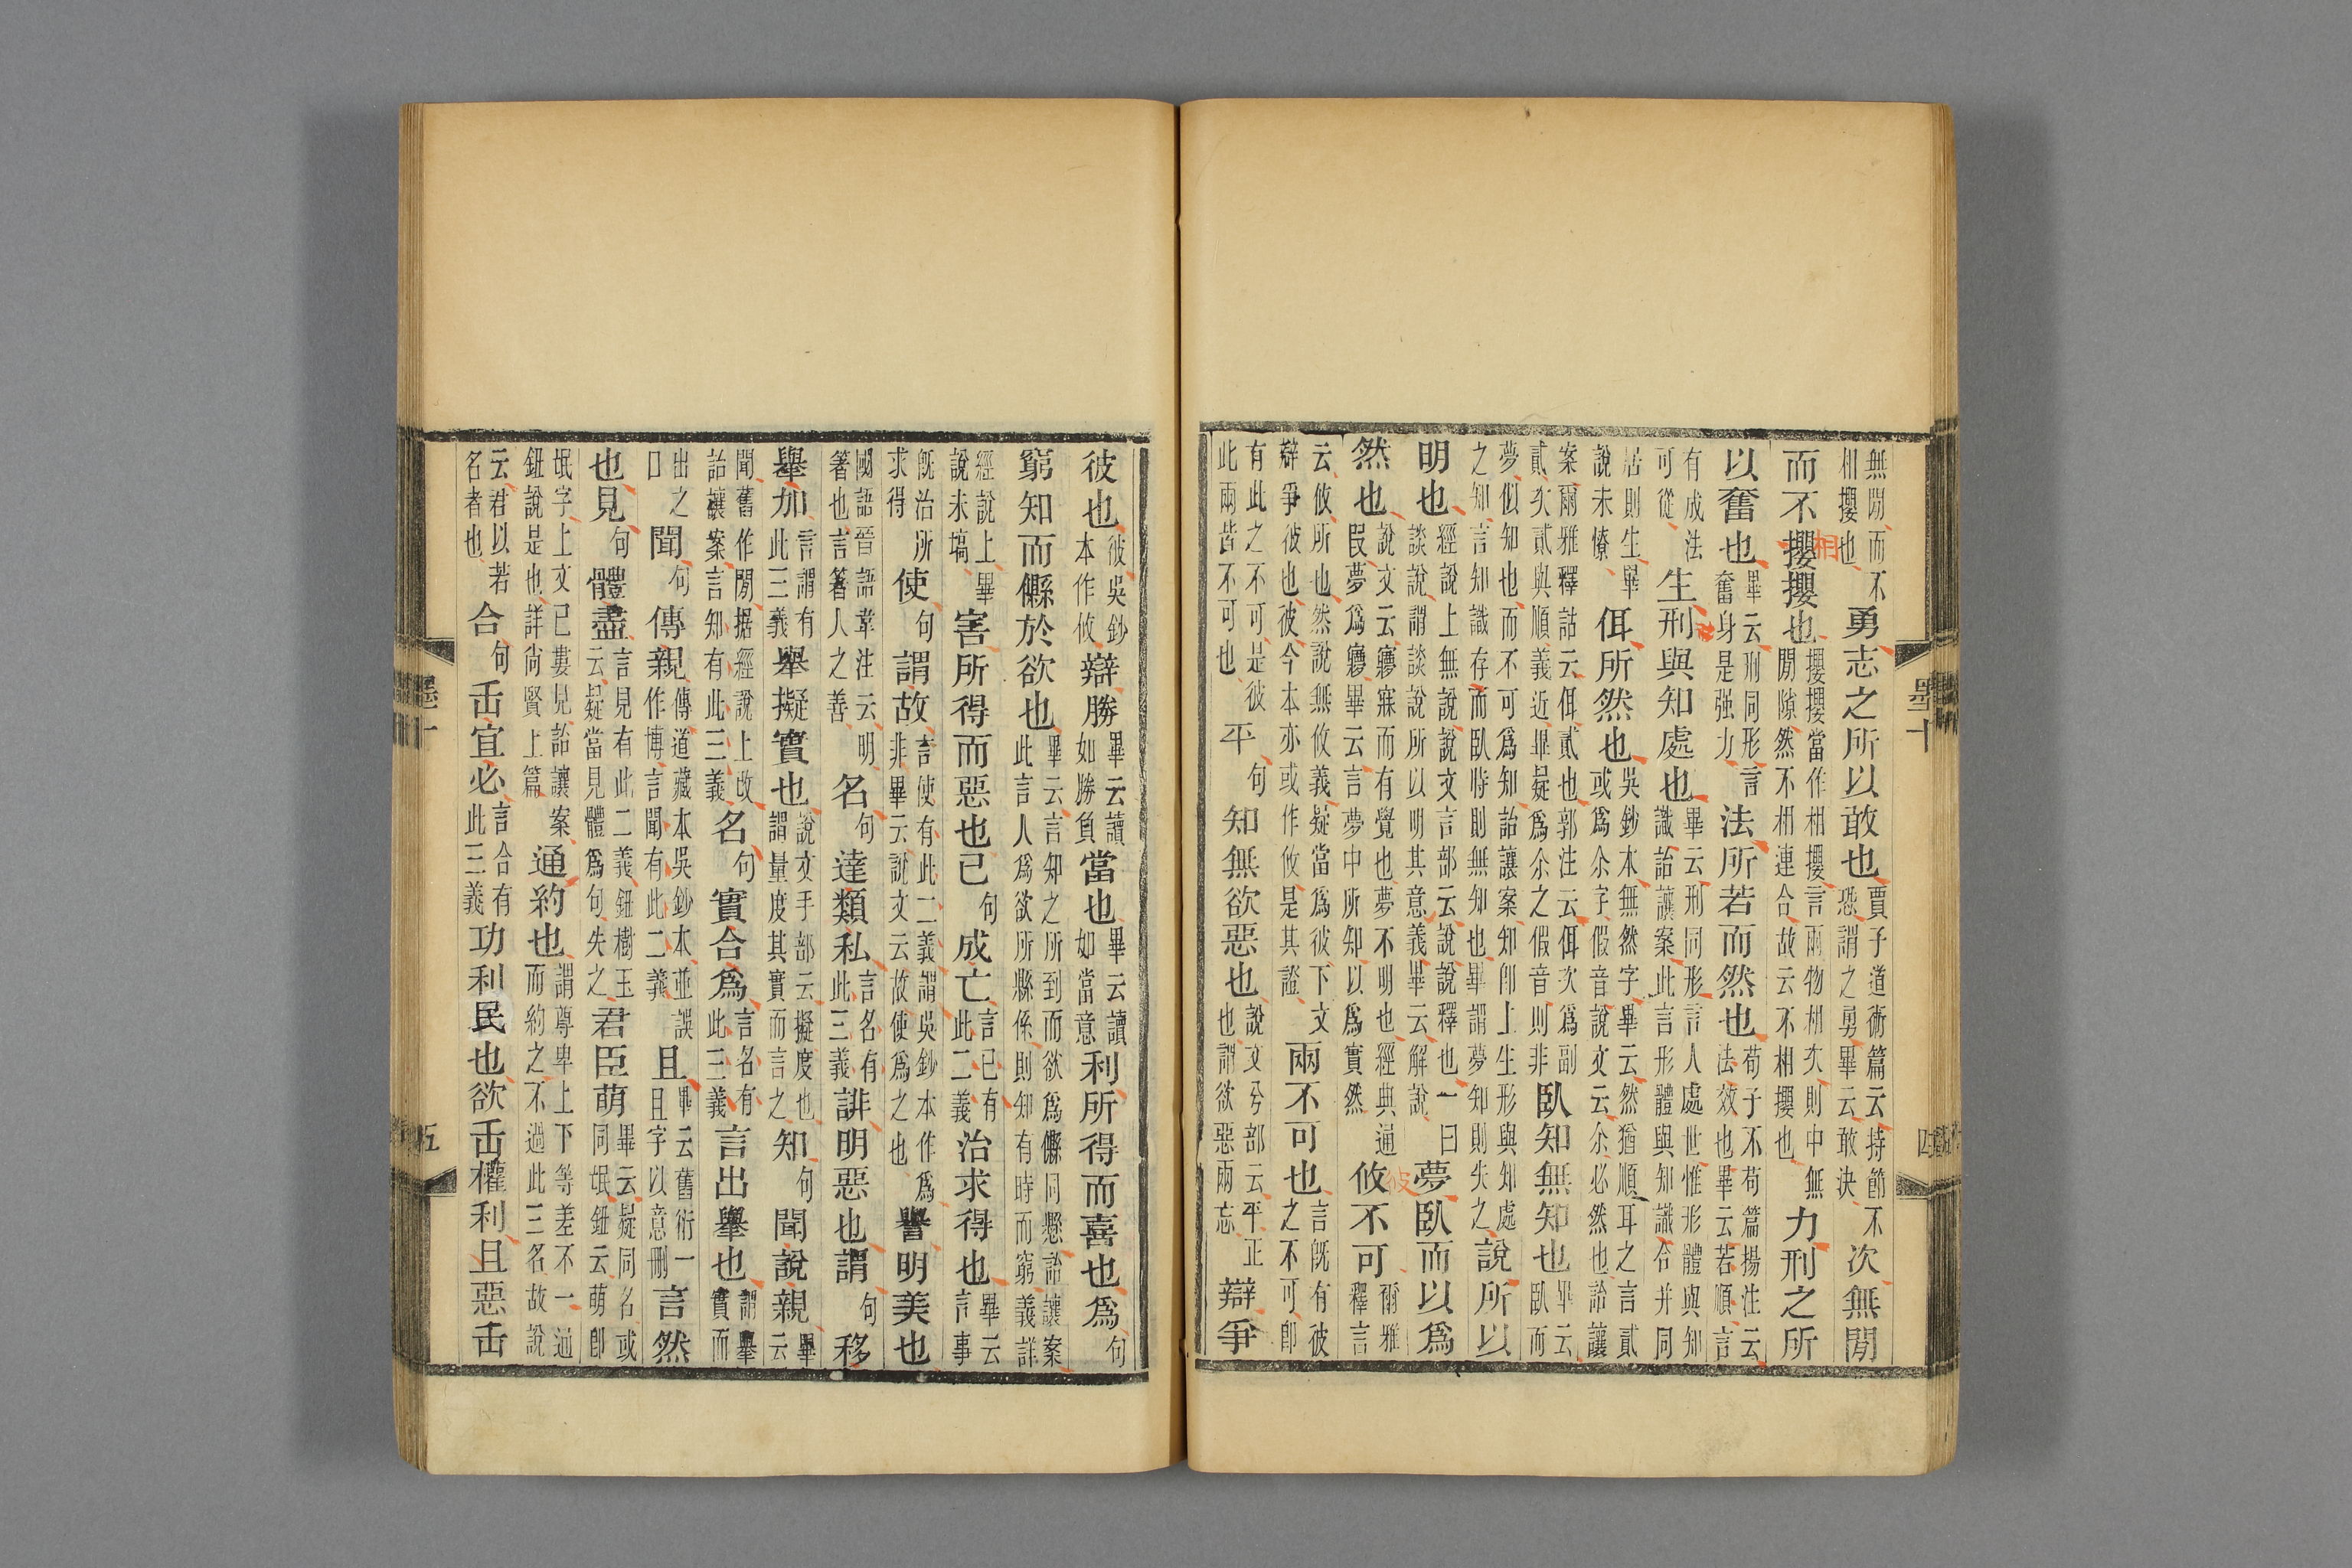 無閒而不相攖也勇志之所以敢也賈子道術篇云持節不恐謂之勇畢云敢決次無閒
而不攖攖也攖攖當作相攖言兩物相次則中無閒隙然不相連合故云不相攖也力刑之所
相
以奮也畢云刑同形言奮身是强力法所若而然也荀子不苟篇揚注云法效也畢云若順言
有成法可從生刑與知處也畢云刑同形言人處世惟形體與知識詒讓案此言形體與知識合并同
居則生畢說未憭佴所然也吳鈔本無然字畢云然猶順耳之言貳或爲尒字假音說文云尒必然也詒讓
案爾雅釋詁云佴貳也郭注云佴次爲副貳次貳與順義近畢疑爲尒之假音則非臥知無知也畢云臥而
夢似知也而不可爲知詒讓案知卽上生形與知處之知言知識存而臥時則無知也畢謂夢知則失之說所以
明也經說上無說說文言部云說說釋也一曰談說謂談說所以明其意義畢云解說夢臥而以爲
然也說文云㝱寐而有覺也夢不明也經典通叚夢爲㝱畢云言夢中所知以爲實然攸不可爾雅釋言
彼
云攸所也然說無攸義疑當爲彼下文辯爭彼也彼今本亦或作攸是其證兩不可也言旣有彼之不可卽
有此之不可是彼此兩皆不可也平句知無欲惡也說文兮部云平正也謂欲惡兩忘辯爭
墨十
四
彼也彼吳鈔本作攸辯勝畢云讀如勝負當也畢云讀如當意利所得而喜也爲句
窮知而縣於欲也畢云言知之所到而欲爲縣同懸詒讓案此言人爲欲所縣係則知有時而窮義詳
經說上畢說未塙害所得而惡也已句成亡言已有此二義治求得也畢云言事
旣治所求得使句謂故言使有此二義謂吳鈔本作爲非畢云說文云故使爲之也譽明美也
國語晉語韋注云明著也言著人之善名句達類私言名有此三義誹明惡也謂句移
舉加言謂有此三義舉擬實也說文手部云擬度也謂量度其實而言之知句聞說親畢云
聞舊作閒据經說上改詒讓案言知有此三義名句實合爲言名有此三義言出舉也謂舉實而
出之口聞句傳親傳道藏本吳鈔本並誤作博言聞有此二義且畢云舊衍一且字以意刪言然
也見句體盡言見有此二義鈕樹玉云疑當見體爲句失之君臣萌畢云疑同名或同氓鈕云萌卽
氓字上文已婁見詒讓案鈕說是也詳尚賢上篇通約也謂尊卑上下等差不一通而約之不過此三名故說
云君以若名者也合句缶宜必言合有此三義功利民也欲缶權利且惡缶
墨十
五